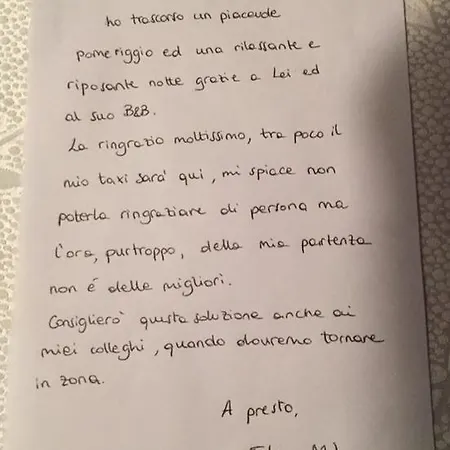 ho trascorso un piacevole
pomeriggio ed una rilassante e
riposante notte grazie a Lei ed
al suo B&B.
La ringrazio moltissimo, tra poco il
mio taxi sarà qui, mi spiace non
poterla ringraziare di persona ma
l'ora, purtroppo, della mia partenza
non é delle migliori.
Consiglierò questa soluzione anche ai
miei colleghi, quando dovremo tornare
in zona.
A presto,